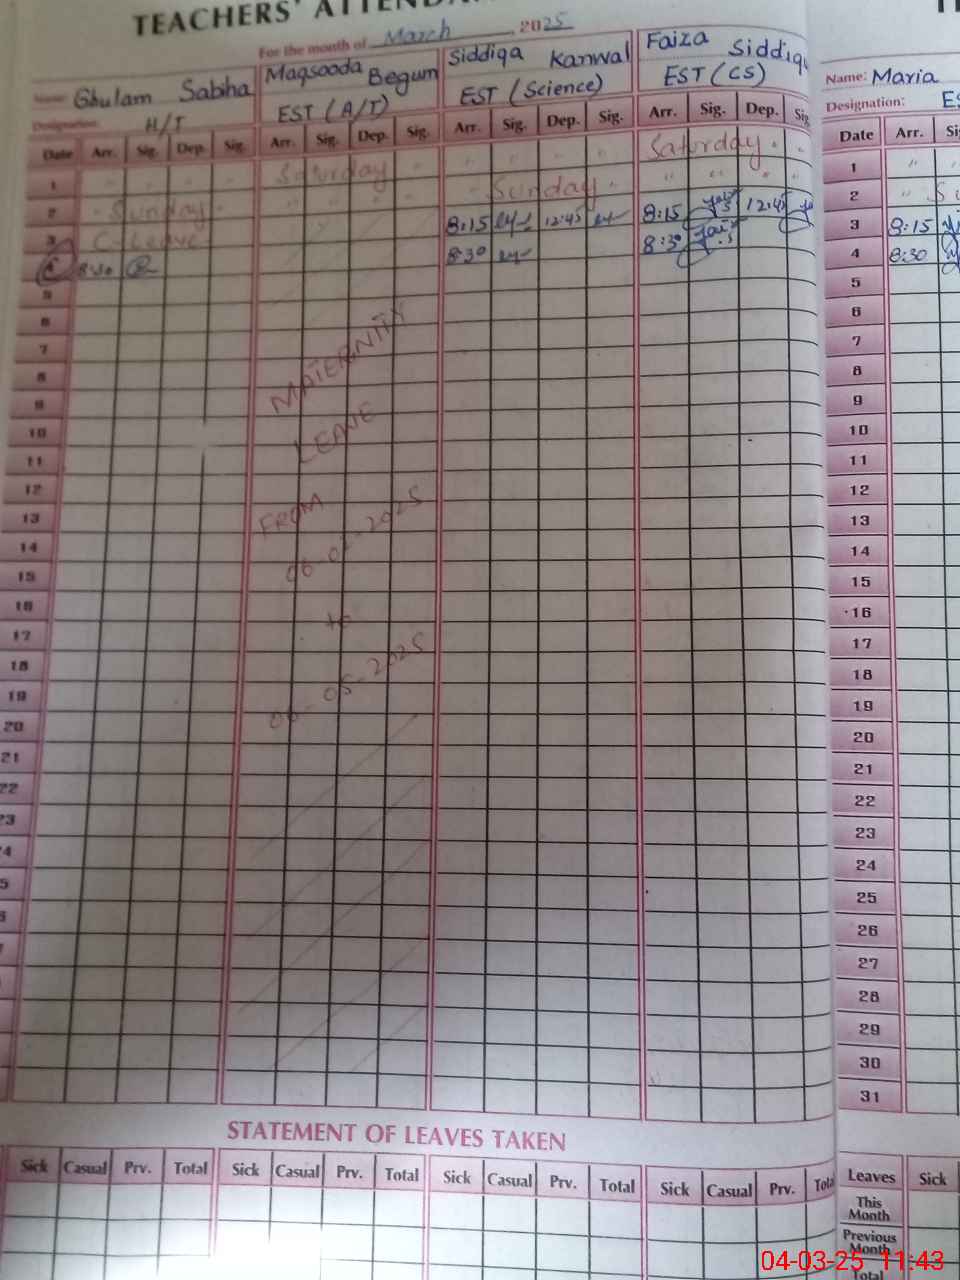 TEACHERS' ATTENDA
For the month of March, 2025
Name: Ghulam Sabiha Maqsooda Begum Siddiqa Kanwal Faiza Siddiqu
Designation: H/T EST (A/T) EST (Science) EST (CS)
Name: Maria
Designation: ES
Date Arr. Sig. Dep. Sig. Arr. Sig. Dep. Sig. Arr. Sig. Dep. Sig. Arr. Sig. Dep. Sig Date Arr. Si
1 " " " " Saturday " " " " Saturday " " 1 "
2 " Sunday " " Sunday " " " " " 2 " Su
3 C-Leave 8:15 12:45 8:15 12:45 3 8:15
4 8:30 8:30 8:30 4 8:30
5 5
6 6
7 7
8 8
9 9
10 10
11 11
12 12
13 13
14 14
15 15
16 16
17 17
18 18
19 19
20 20
21 21
22 22
23 23
4 24
5 25
6 26
7 27
28
29
30
31
MATERNITY
LEAVE
FROM
06-02-2025
to
06-05-2025
STATEMENT OF LEAVES TAKEN
Sick Casual Prv. Total Sick Casual Prv. Total Sick Casual Prv. Total Sick Casual Prv. Tota Leaves Sick
This
Month
Previous
Month
Total
04-03-25 11:43